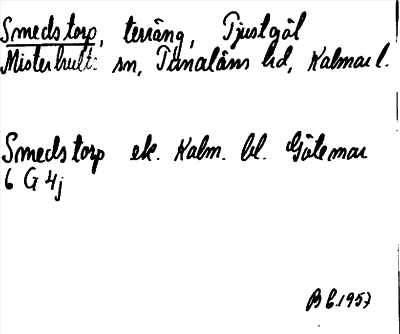 Smedstorp, terräng, Tjustgöl
Misterhults sn, Tunaläns hd, Kalmar l.
Smedstorp ek. Kalm. bl. Götemar
6 G 4j
1957